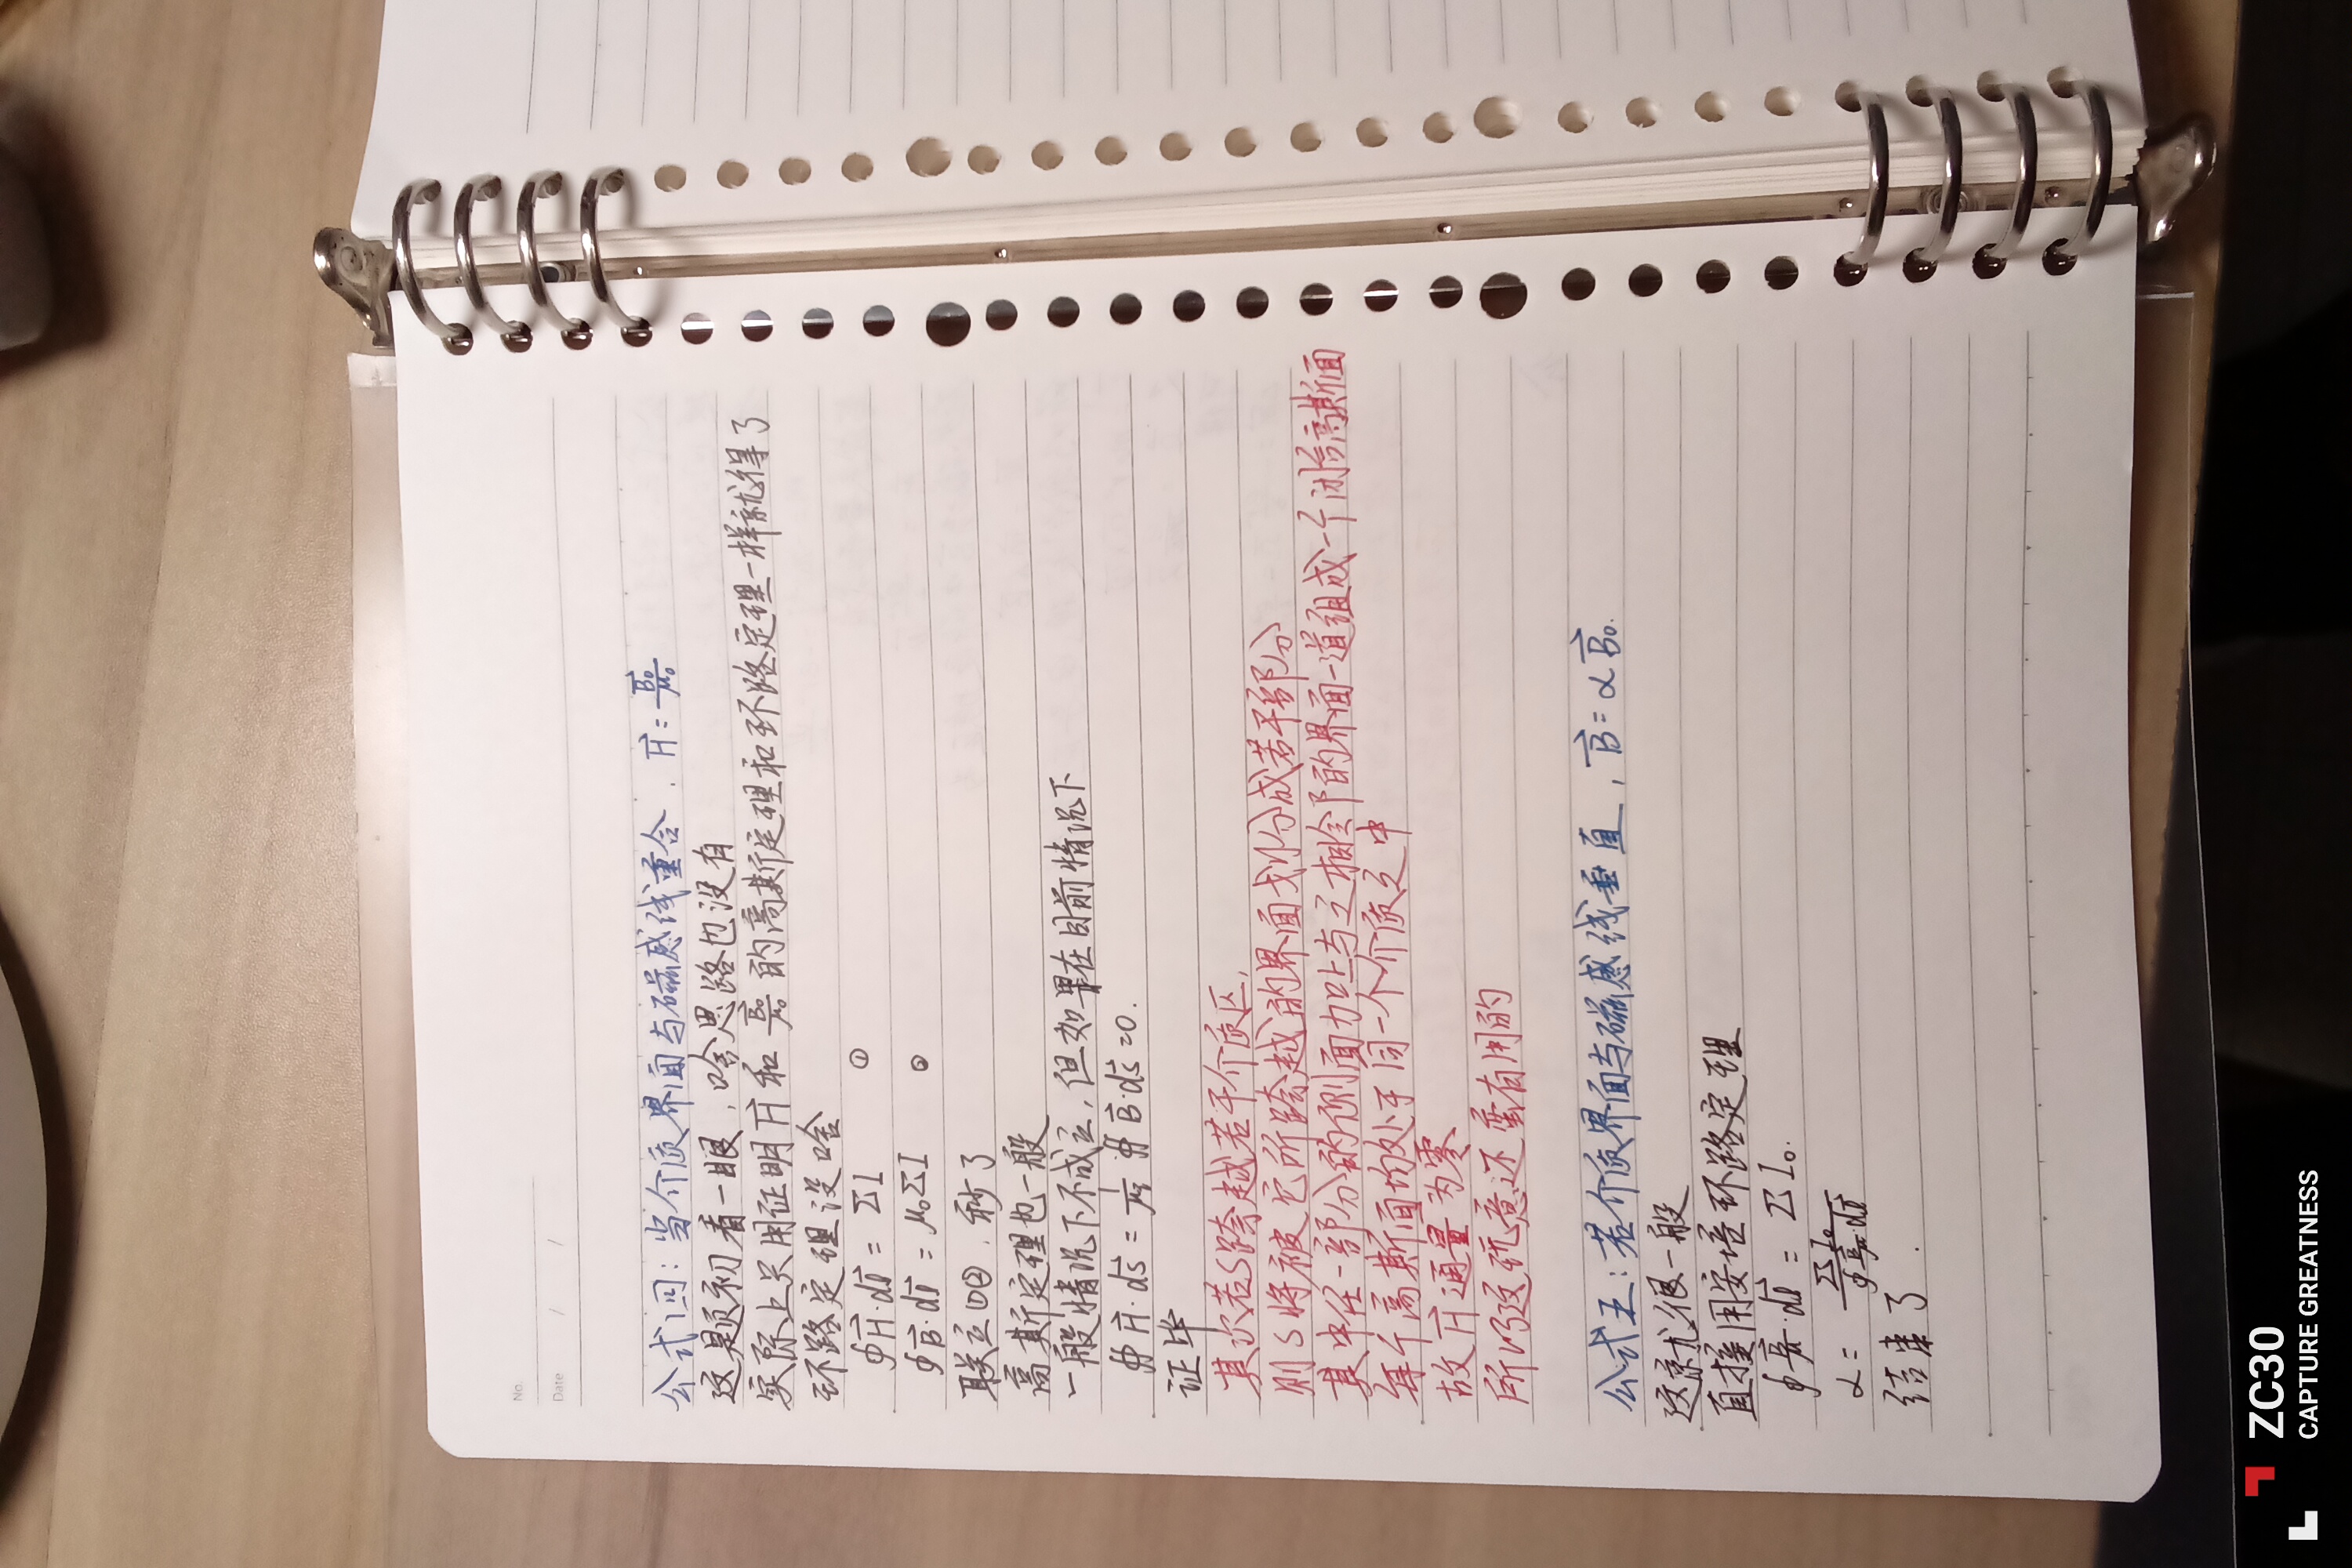 No.
Date / /
公式四：当介质界面与磁感线重合，H⃗ = B⃗₀/μ₀
这题初看一眼，啥思路也没有
实际上只用证明H⃗和B⃗₀/μ₀的高斯定理和环路定理一样就得了
环路定理没啥
∮H⃗·dl⃗ = ΣI ①
∮B⃗·dl⃗ = μ₀ΣI ②
联立①②，秒了
高斯定理也一般
一般情况下不成立，但如果在目前情况下
∯H⃗·ds⃗ = ∯B⃗·ds⃗ = 0.
证毕
其次若S跨越若干介质区，
则S将被它所跨越的界面划分成若干部分
其中任一部分的侧面加上与之相令阝的界面一道组成一个闭合高斯面
每个高斯面均处于同一个介质之中
故H⃗通量为零
所以这玩意还蛮有用的
公式五：若介质界面与磁感线垂直，B⃗ = αB⃗₀.
这就很一般
直接用安培环路定理
∮B⃗/μ·dl⃗ = ΣI₀.
α = ΣI₀/∮B⃗₀/μ·dl⃗
结束了.
ZC30
CAPTURE GREATNESS